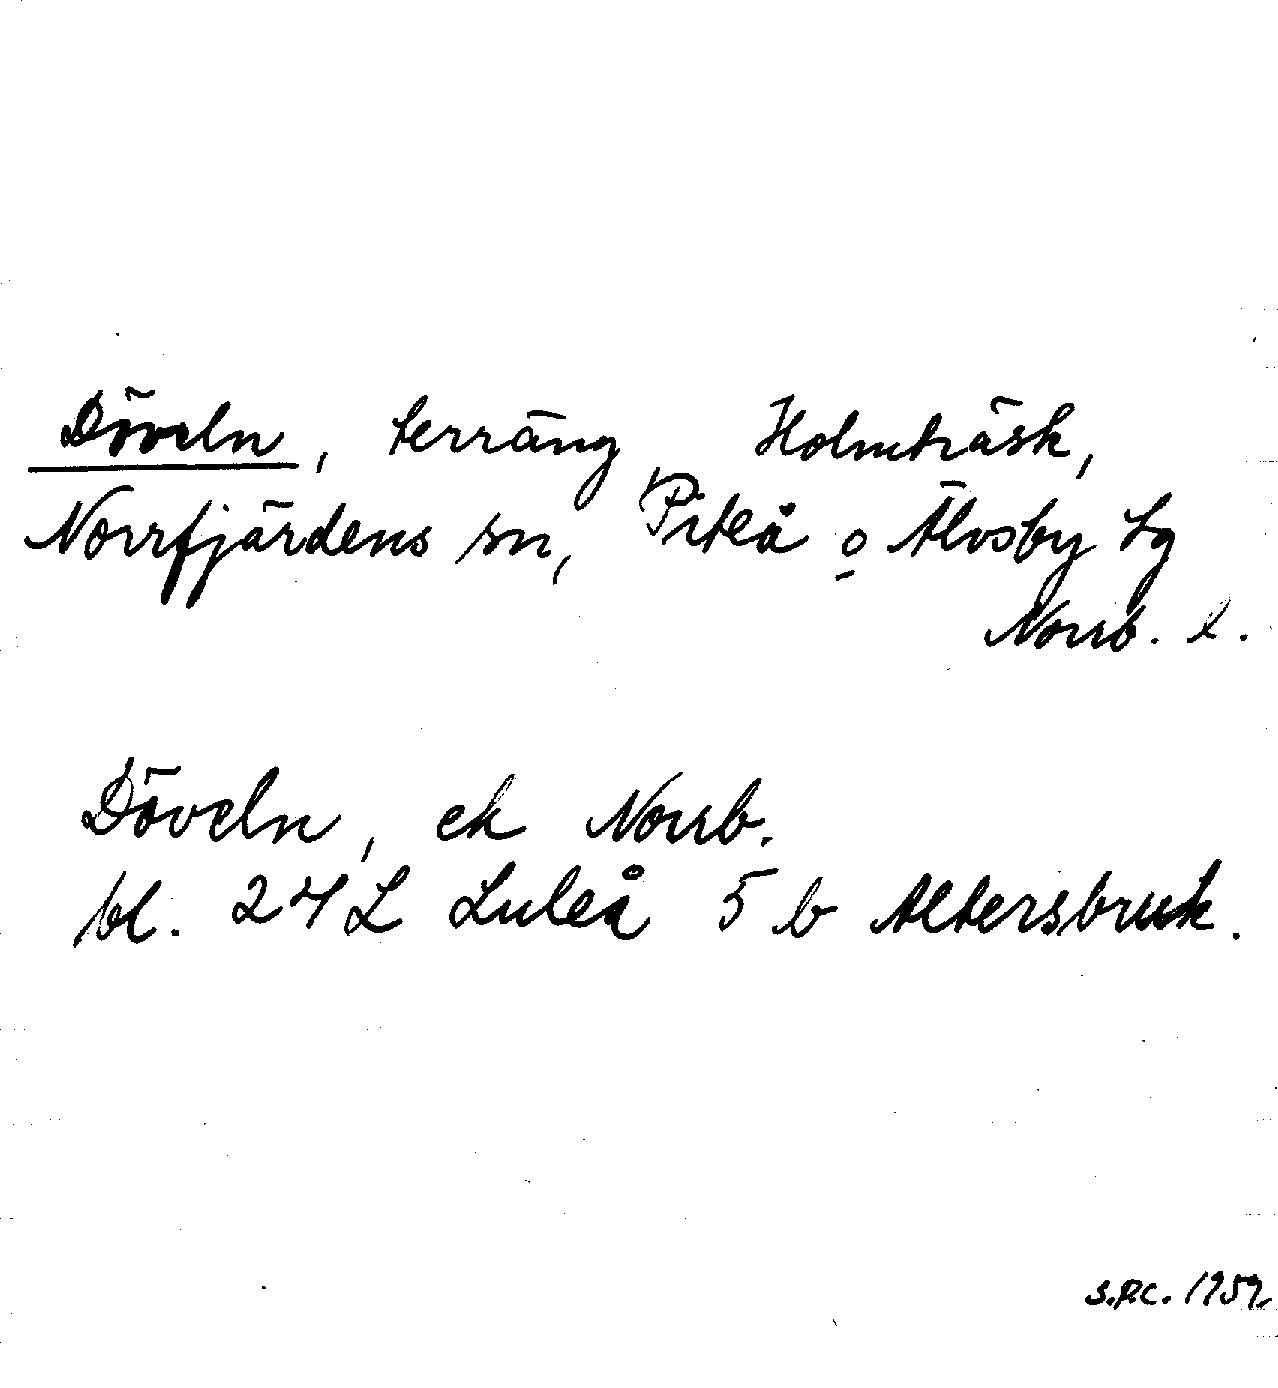 Döveln, terräng Holmträsk,
Norrfjärdens sn, Piteå o Älvsby tg
Norrb. l.
Döveln, ek Norrb.
bl. 24 L Luleå 5 b Altersbruk.
S.P.C. 1959